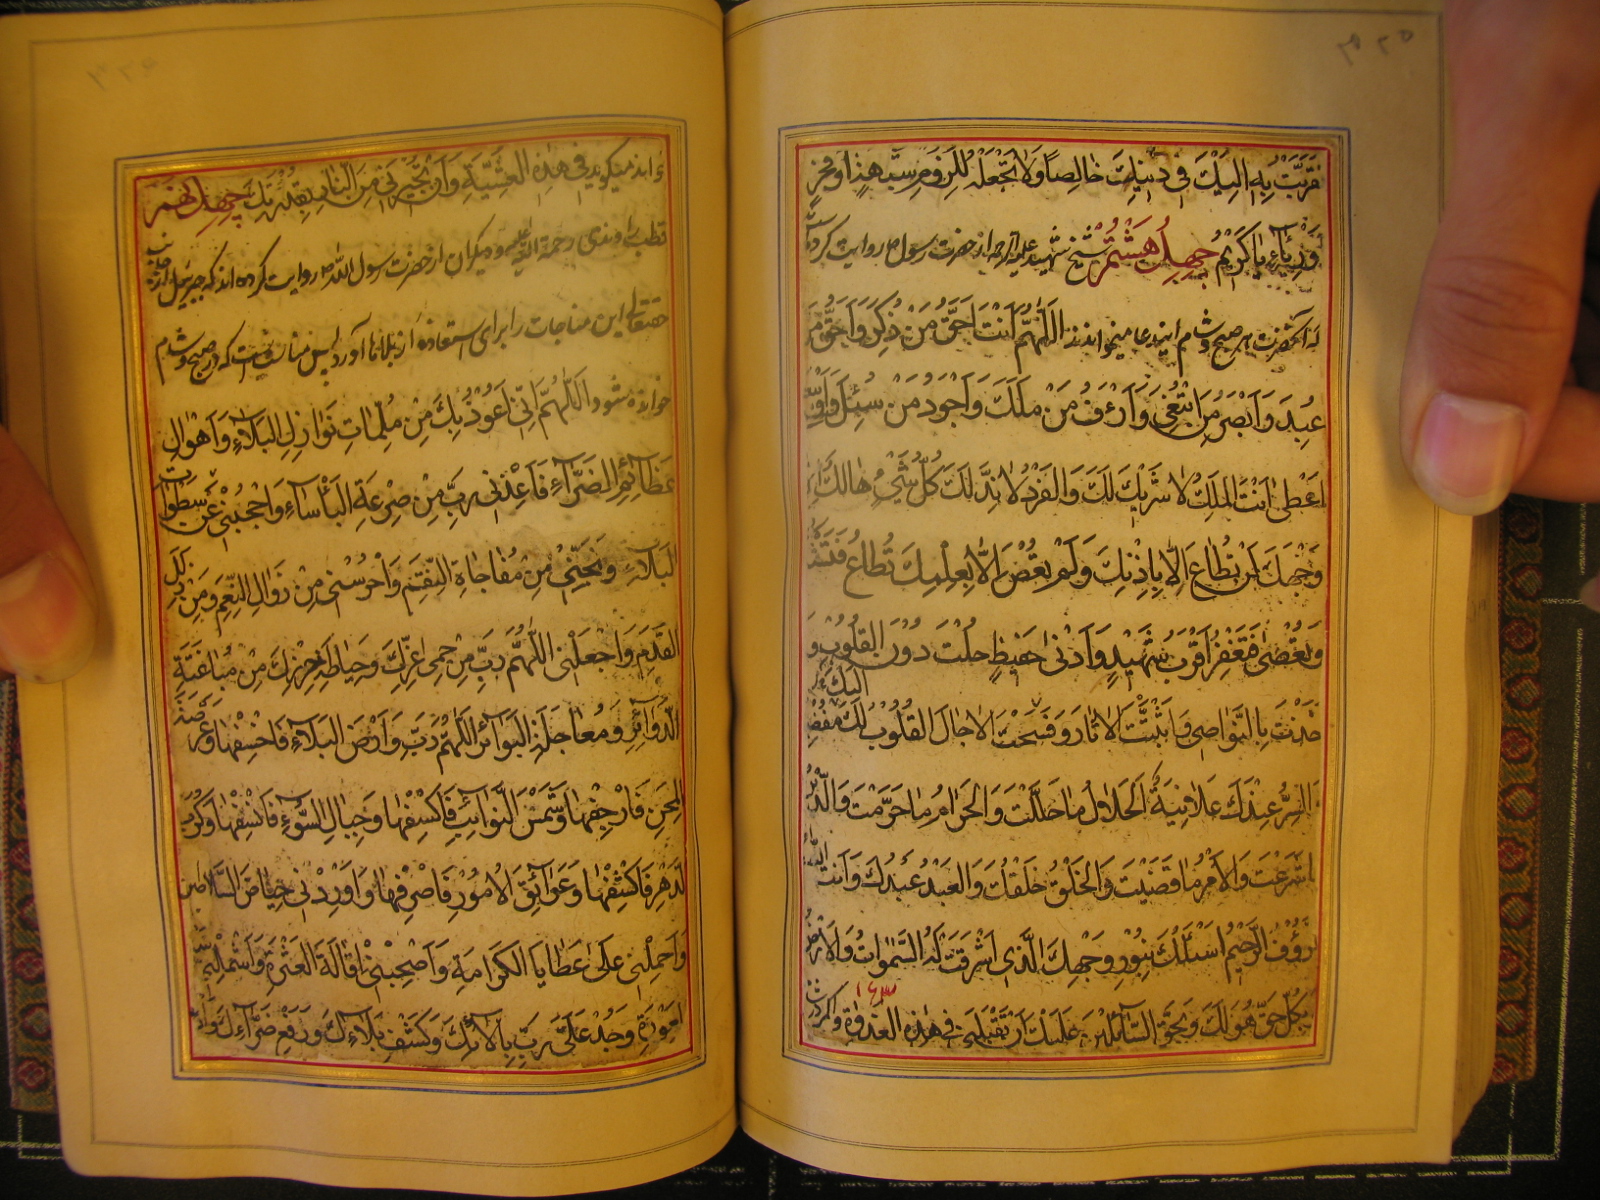 قربت به اليك في دنياك خالصا ولا تجعله للزوم سبب هذا وفخر
ورياء يا كريم چهل هشتم شيخ شهيد عليه الرحمه از حضرت رسول ص روايت كرده
كه آنحضرت هر صبح وشام اين دعا ميخواندند اللهم انت احق من ذكر واحق من
عبد وابصر من ابتغي وارءف من ملك واجود من سئل واوسع
اعطى انت الملك لا شريك لك والفرد لا ند لك كل شيء هالك الا
وجهك لن تطاع الا باذنك ولم تعص الا بعلمك تطاع فتشكر
وتعصى فتغفر اقرب شهيد وادنى حفيظ حلت دون القلوب و
اليك
اخذت بالنواصي واثبتت الاثار ونسخت الاجال القلوب لك مفضية
والسر عندك علانية الحلال ما حللت والحرام ما حرمت والدين
ما شرعت والامر ما قضيت والخلق خلقك والعبد عبدك وانت الله
الرؤف الرحيم اسئلك بنور وجهك الذي اشرقت له السموات والارض
١٦٣
بكل حق هو لك وبحق السائلين عليك ان تقبلني في هذه الغدوة واكر در شب
٤٢٥
خواند ميكويد في هذه العشية وان تجيرني من النار بقدرتك چهل نهم
قطب راوندي رحمة الله عليه وديكران از حضرت رسول الله ص روايت كرده اند كه جبرئيل از جانب
حقتعالى اين مناجات را براى استعاذه از بلاها آورد پس مناسب است كه در صبح وشام
خوانده شود اللهم اني اعوذ بك من ملمات نوازل البلاء واهوال
عظائم الضراء فاعذني رب من صرعة الباساء واحجبني عن سطوات
البلاء ونجني من مفاجاة النقم واحرسني من زوال النعم ومن زلل
القدم واجعلني اللهم رب من حمى عزك وحياط حرزك من مباغتة
الدوائر ومعاجلة البوائر اللهم رب وارض البلاء فاخسفها وعرصة
المحن فارجفها وشمس النوائب فاكسفها وجبال السوء فانسفها وكرب
الدهر فاكشفها وعوائق الامور فاصرفها واوردني حياض السلامة
واحملني على مطايا الكرامة واصحبني اقالة العثرة واشملني ستر
العورة وجد علي رب بالائك وكشف بلاءك ورفع ضراءك وادفع